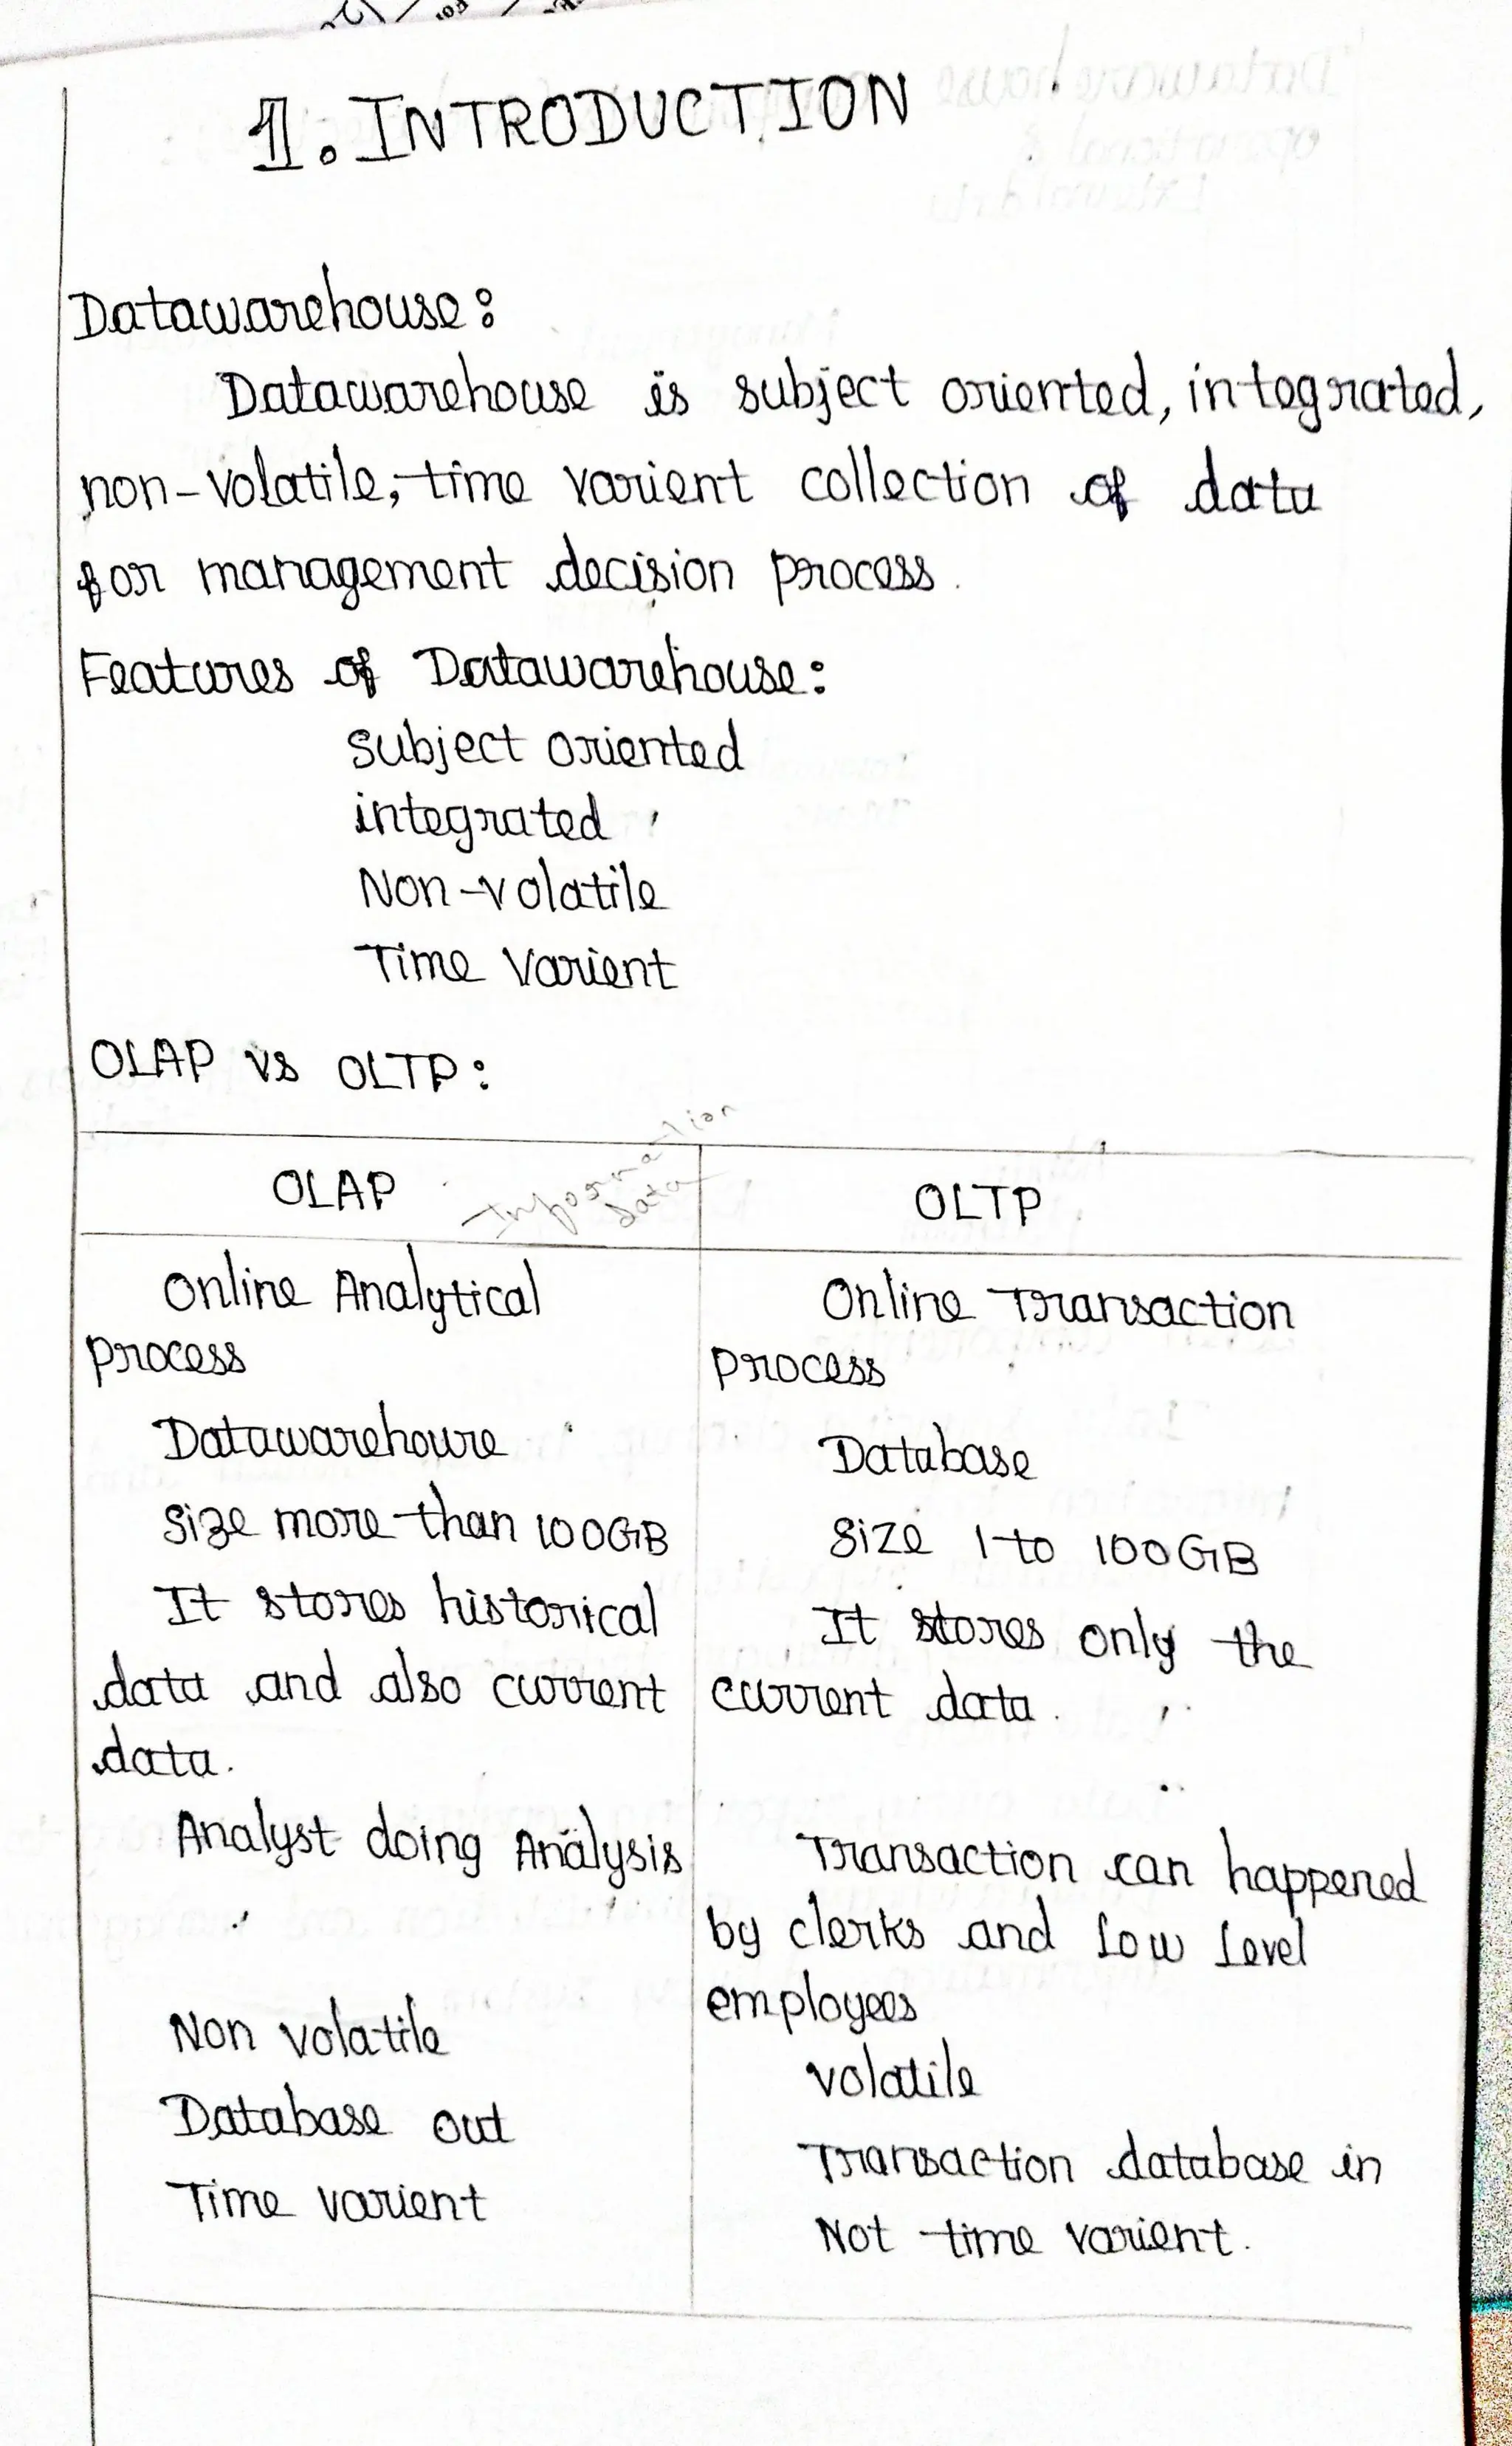 1. INTRODUCTION
Datawarehouse:
Datawarehouse is subject oriented, integrated,
non-volatile, time varient collection of data
for management decision process.
Features of Datawarehouse:
subject oriented
integrated
Non-volatile
Time Varient
OLAP vs OLTP:
Information
data
OLAP
OLTP
Online Analytical
process
Datawarehouse
size more than 100GB
It stores historical
data and also current
data.
Analyst doing Analysis
Non volatile
Database out
Time varient
Online Transaction
process
Database
size 1 to 100GB
It stores only the
current data.
Transaction can happened
by clerks and Low Level
employees
volatile
Transaction database in
Not time varient.